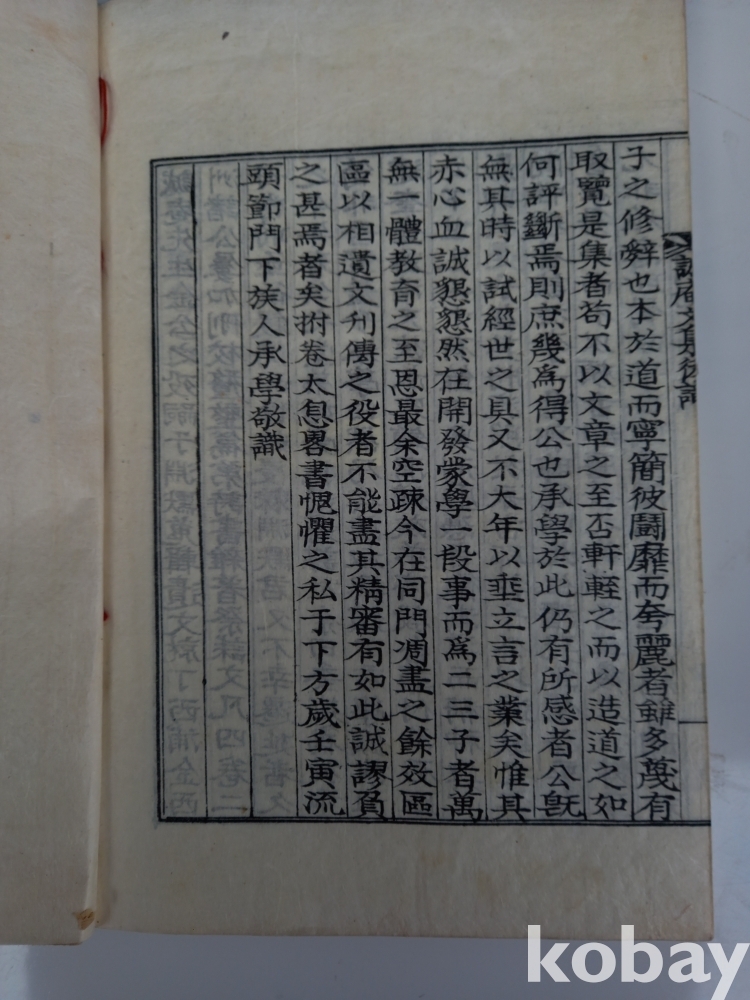 誠庵文集後識
子之修辭也本於道而寧簡彼鬪靡而夸麗者雖多蔑有
取覽是集者苟不以文章之至否軒輊之而以造道之如
何評斷焉則庶幾爲得公也承學於此仍有所感者公旣
無其時以試經世之具又不大年以垂立言之業矣惟其
赤心血誠懇懇然在開發蒙學一段事而爲二三子者萬
無一體敎育之至恩最余空疎今在同門凋盡之餘效區
區以相遺文刋傳之役者不能盡其精審有如此誠謬負
之甚焉者矣拊卷太息畧書愧懼之私于下方歲壬寅流
頭節門下族人承學敬識
kobay